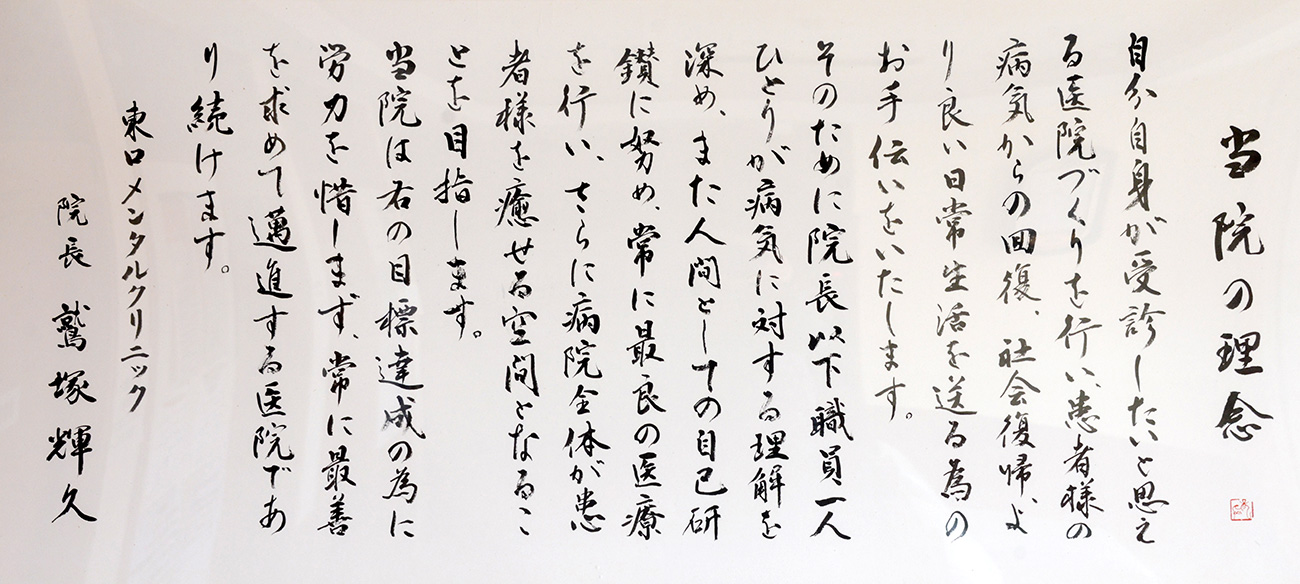 当院の理念
自分自身が受診したいと思え
る医院づくりを行い、患者様の
病気からの回復、社会復帰、よ
り良い日常生活を送る為の
お手伝いをいたします。
そのために院長以下職員一人
ひとりが病気に対する理解を
深め、また人間としての自己研
鑚に努め、常に最良の医療
を行い、さらに病院全体が患
者様を癒せる空間となるこ
とを目指します。
当院は右の目標達成の為に
労力を惜しまず、常に最善
を求めて邁進する医院であ
り続けます。
東口メンタルクリニック
院長 鷲塚輝久